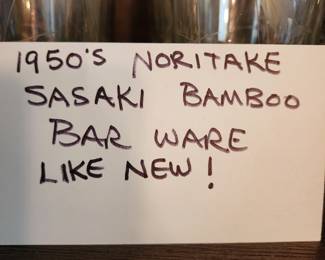 1950's NORITAKE
SASAKI BAMBOO
BAR WARE
LIKE NEW!